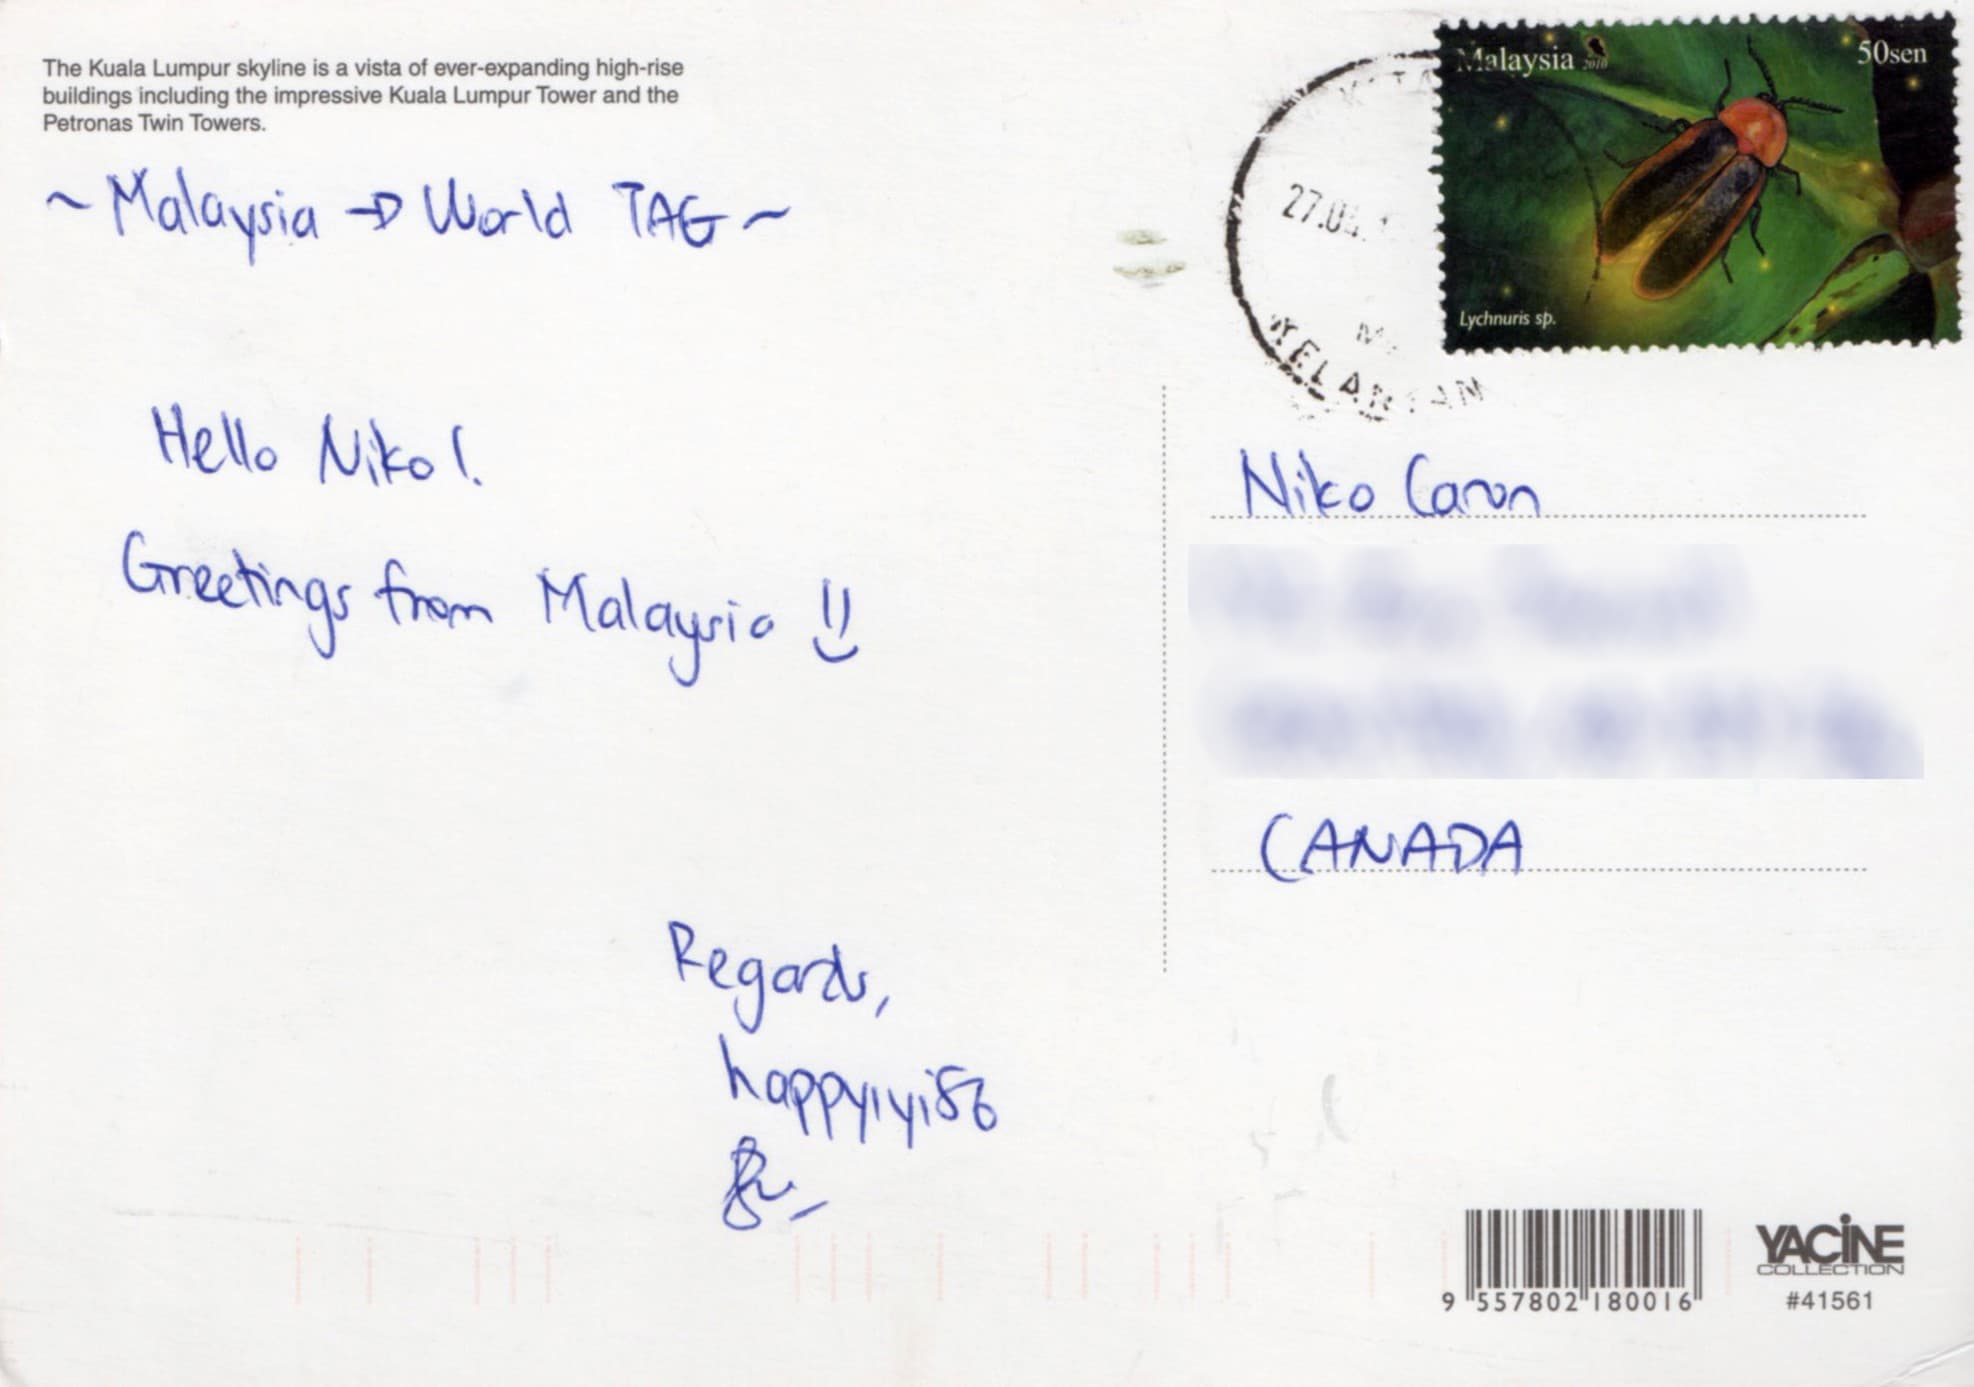 The Kuala Lumpur skyline is a vista of ever-expanding high-rise
buildings including the impressive Kuala Lumpur Tower and the
Petronas Twin Towers.
~ Malaysia → World TAG ~
Hello Niko!
Greetings from Malaysia !!
Regards,
happyiyi86
Malaysia 2010
50sen
Lychnuris sp.
27.04.
KELANTAN
Niko Caron
CANADA
9 557802 180016
YACINE
COLLECTION
#41561